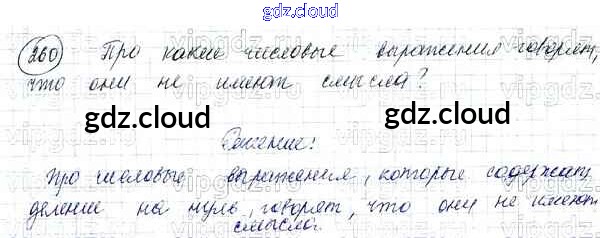 gdz.cloud
260 Про какие числовые выражения говорят,
что они не имеют смысла?
gdz.cloud gdz.cloud
Решение:
Про числовые выражения, которые содержат
деление на нуль, говорят, что они не имеют
смысла.